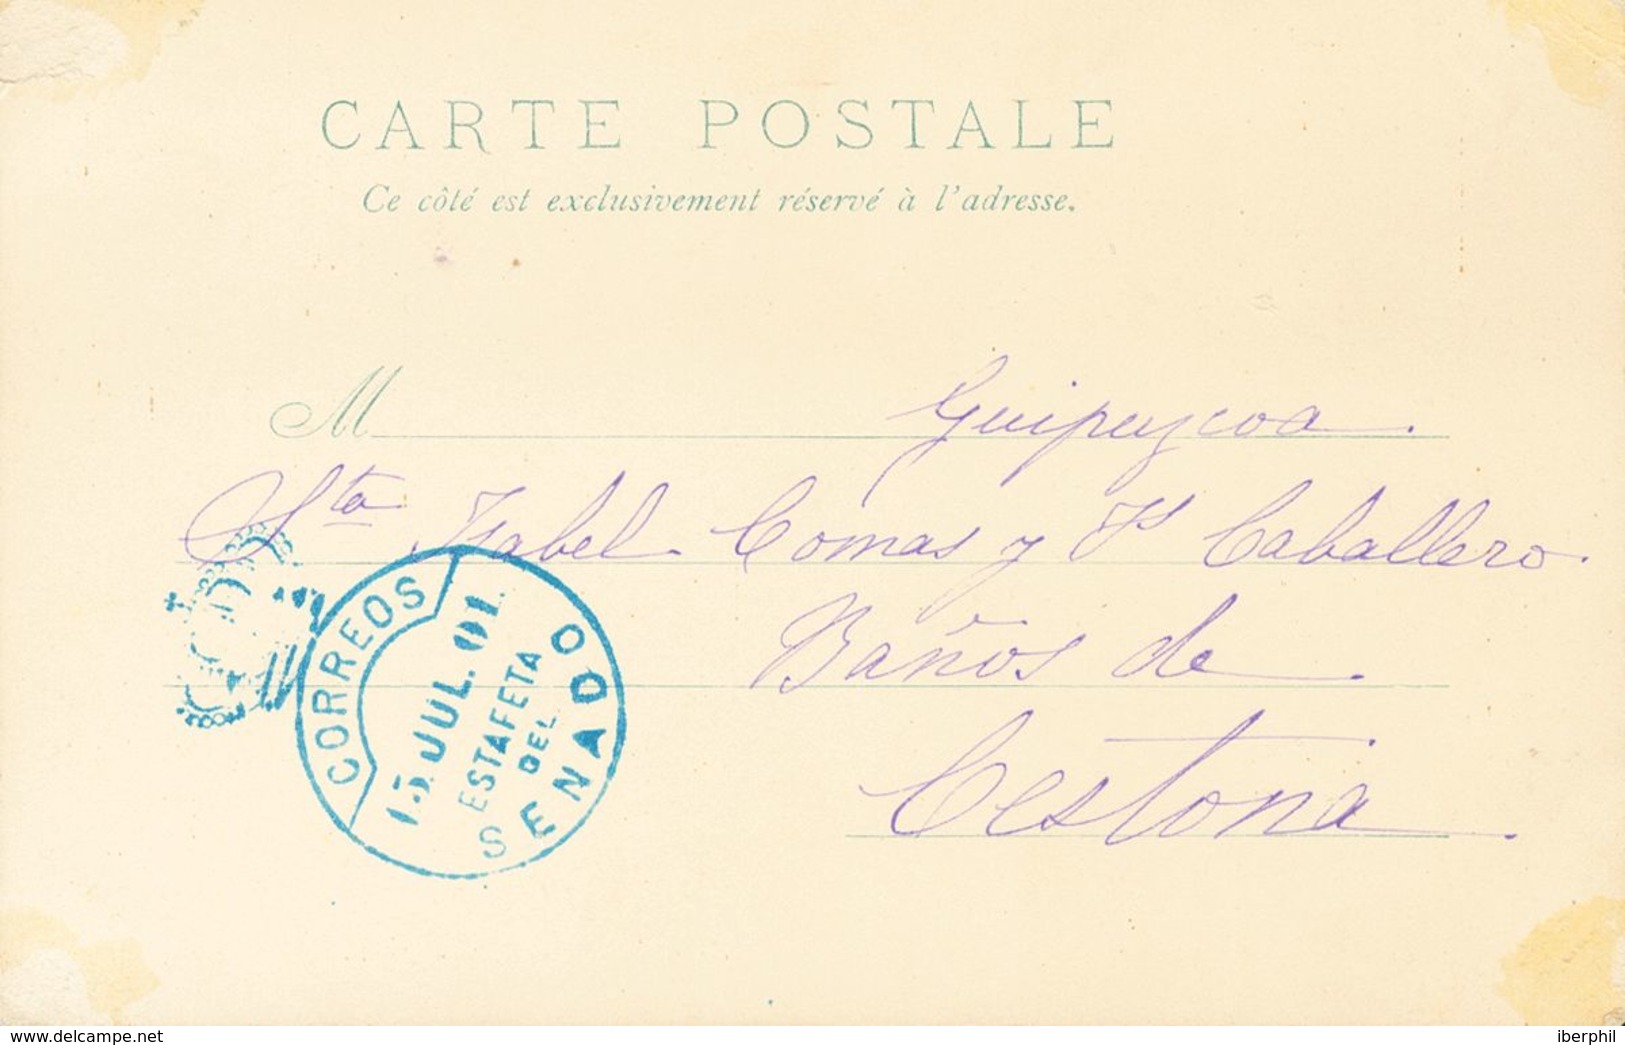 CARTE POSTALE
Ce côté est exclusivement réservé à l'adresse.
M
Guipuzcoa.
Sta Isabel Comas y Caballero.
Baños de
Cestona.
CORREOS
15 JUL. 01.
ESTAFETA
DEL
SENADO
delcampe.net
iberphil